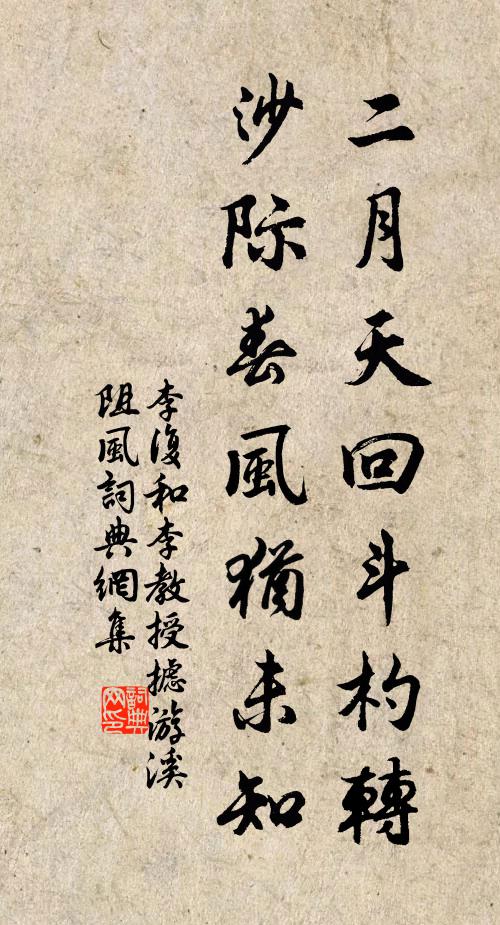 二月天回斗杓轉
沙際春風猶未知
李復和李教授摅游溪
阻風詞典網集
詞典网印